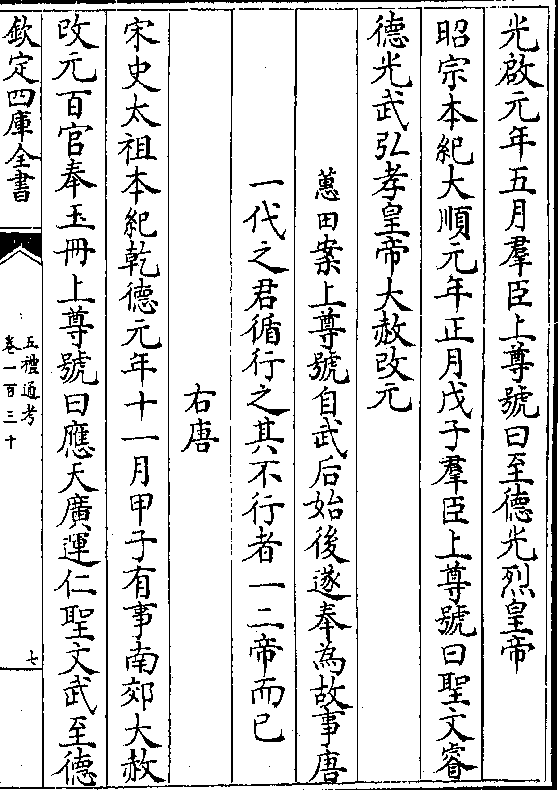 光啟元年五月羣臣上尊號曰至德光烈皇帝
昭宗本紀大順元年正月戊子羣臣上尊號曰聖文睿
德光武弘孝皇帝大赦改元
蕙田案上尊號自武后始後遂奉為故事唐
一代之君循行之其不行者一二帝而已
右唐
宋史太祖本紀乾德元年十一月甲子有事南郊大赦
改元百官奉玉冊上尊號曰應天廣運仁聖文武至德
欽定四庫全書
五禮通考
卷一百三十
七